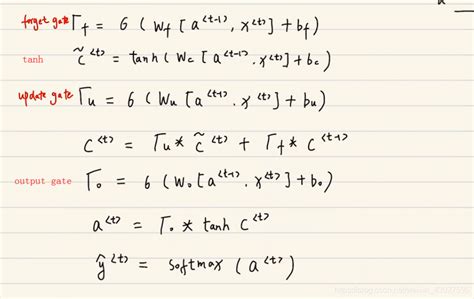 forget gate Γf = σ (Wf [a<t-1>, x<t>] + bf)
tanh c̃<t> = tanh (Wc [a<t-1>, x<t>] + bc)
update gate Γu = σ (Wu [a<t-1>, x<t>] + bu)
c<t> = Γu * c̃<t> + Γf * c<t-1>
output gate Γo = σ (Wo [a<t-1>, x<t>] + bo)
a<t> = Γo * tanh c<t>
ŷ<t> = softmax (a<t>)